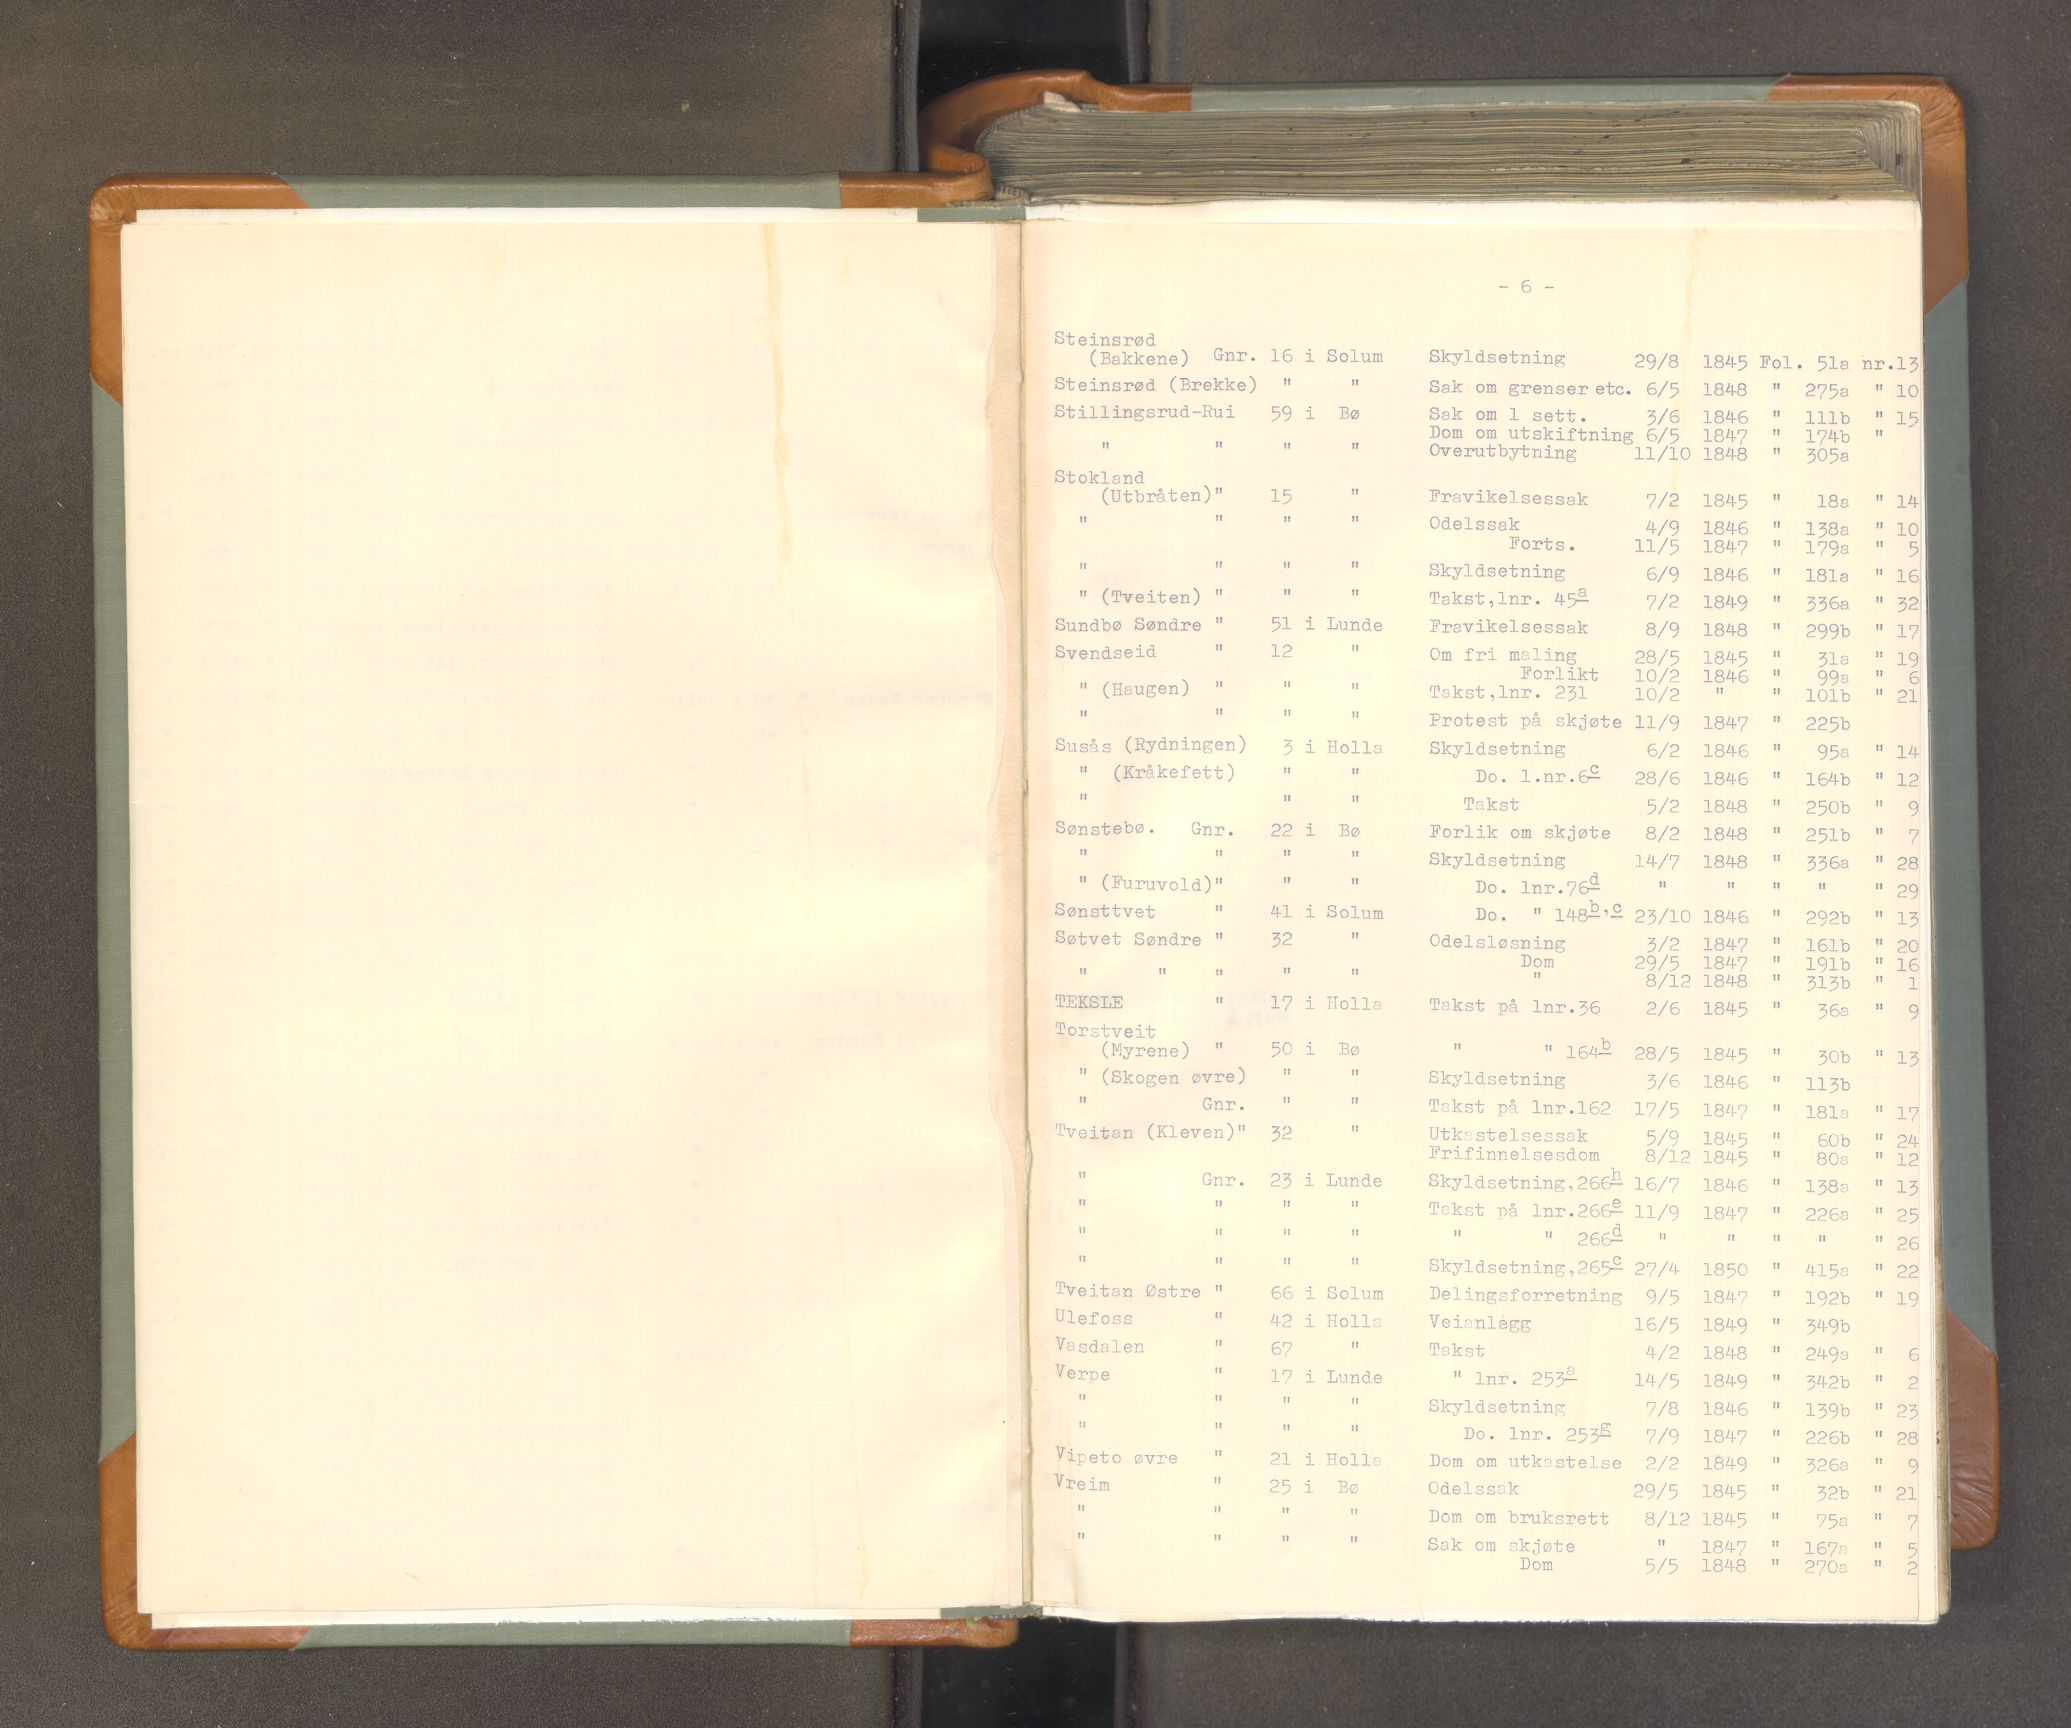 - 6 -
Steinsrød
(Bakkene) Gnr. 16 i Solum Skyldsetning 29/8 1845 Fol. 51a nr.13
Steinsrød (Brekke) " " Sak om grenser etc. 6/5 1848 " 275a " 10
Stillingsrud-Rui 59 i Bø Sak om 1 sett. 3/6 1846 " 111b " 15
Dom om utskiftning 6/5 1847 " 174b "
" " " " Overutbytning 11/10 1848 " 305a
Stokland
(Utbråten)" 15 " Fravikelsessak 7/2 1845 " 18a " 14
" " " " Odelssak 4/9 1846 " 138a " 10
Forts. 11/5 1847 " 179a " 5
" " " " Skyldsetning 6/9 1846 " 181a " 16
" (Tveiten) " " " Takst, lnr. 45a 7/2 1849 " 336a " 32
Sundbø Søndre " 51 i Lunde Fravikelsessak 8/9 1848 " 299b " 17
Svendseid " 12 " Om fri maling 28/5 1845 " 31a " 19
Forlikt 10/2 1846 " 99a " 6
" (Haugen) " " " Takst, lnr. 231 10/2 " " 101b " 21
" " " " Protest på skjøte 11/9 1847 " 225b
Susås (Rydningen) 3 i Holla Skyldsetning 6/2 1846 " 95a " 14
" (Kråkefett) " " Do. l.nr.6c 28/6 1846 " 164b " 12
" " " Takst 5/2 1848 " 250b " 9
Sønstebø. Gnr. 22 i Bø Forlik om skjøte 8/2 1848 " 251b " 7
" " " " Skyldsetning 14/7 1848 " 336a " 28
" (Furuvold)" " " Do. lnr.76d " " " " " 29
Sønsttvet " 41 i Solum Do. " 148b,c 23/10 1846 " 292b " 13
Søtvet Søndre " 32 " Odelsløsning 3/2 1847 " 161b " 20
Dom 29/5 1847 " 191b " 16
" " " " " " 8/12 1848 " 313b " 1
TEKSLE " 17 i Holla Takst på lnr.36 2/6 1845 " 36a " 9
Torstveit
(Myrene) " 50 i Bø " " 164b 28/5 1845 " 30b " 13
" (Skogen øvre) " " Skyldsetning 3/6 1846 " 113b
" Gnr. " " Takst på lnr.162 17/5 1847 " 181a " 17
Tveitan (Kleven)" 32 " Utkastelsessak 5/9 1845 " 60b " 24
Frifinnelsesdom 8/12 1845 " 80a " 12
" Gnr. 23 i Lunde Skyldsetning, 266h 16/7 1846 " 138a " 13
" " " " Takst på lnr.266e 11/9 1847 " 226a " 25
" " " " " " 266d " " " " " 26
" " " " Skyldsetning, 265c 27/4 1850 " 415a " 22
Tveitan Østre " 66 i Solum Delingsforretning 9/5 1847 " 192b " 19
Ulefoss " 42 i Holla Veianlegg 16/5 1849 " 349b
Vasdalen " 67 " Takst 4/2 1848 " 249a " 6
Verpe " 17 i Lunde " lnr. 253a 14/5 1849 " 342b " 2
" " " " Skyldsetning 7/8 1846 " 139b " 23
" " " " Do. lnr. 253g 7/9 1847 " 226b " 28
Vipeto øvre " 21 i Holla Dom om utkastelse 2/2 1849 " 326a " 9
Vreim " 25 i Bø Odelssak 29/5 1845 " 32b " 21
" " " " Dom om bruksrett 8/12 1845 " 75a " 7
" " " " Sak om skjøte " 1847 " 167a " 5
Dom 5/5 1848 " 270a " 2